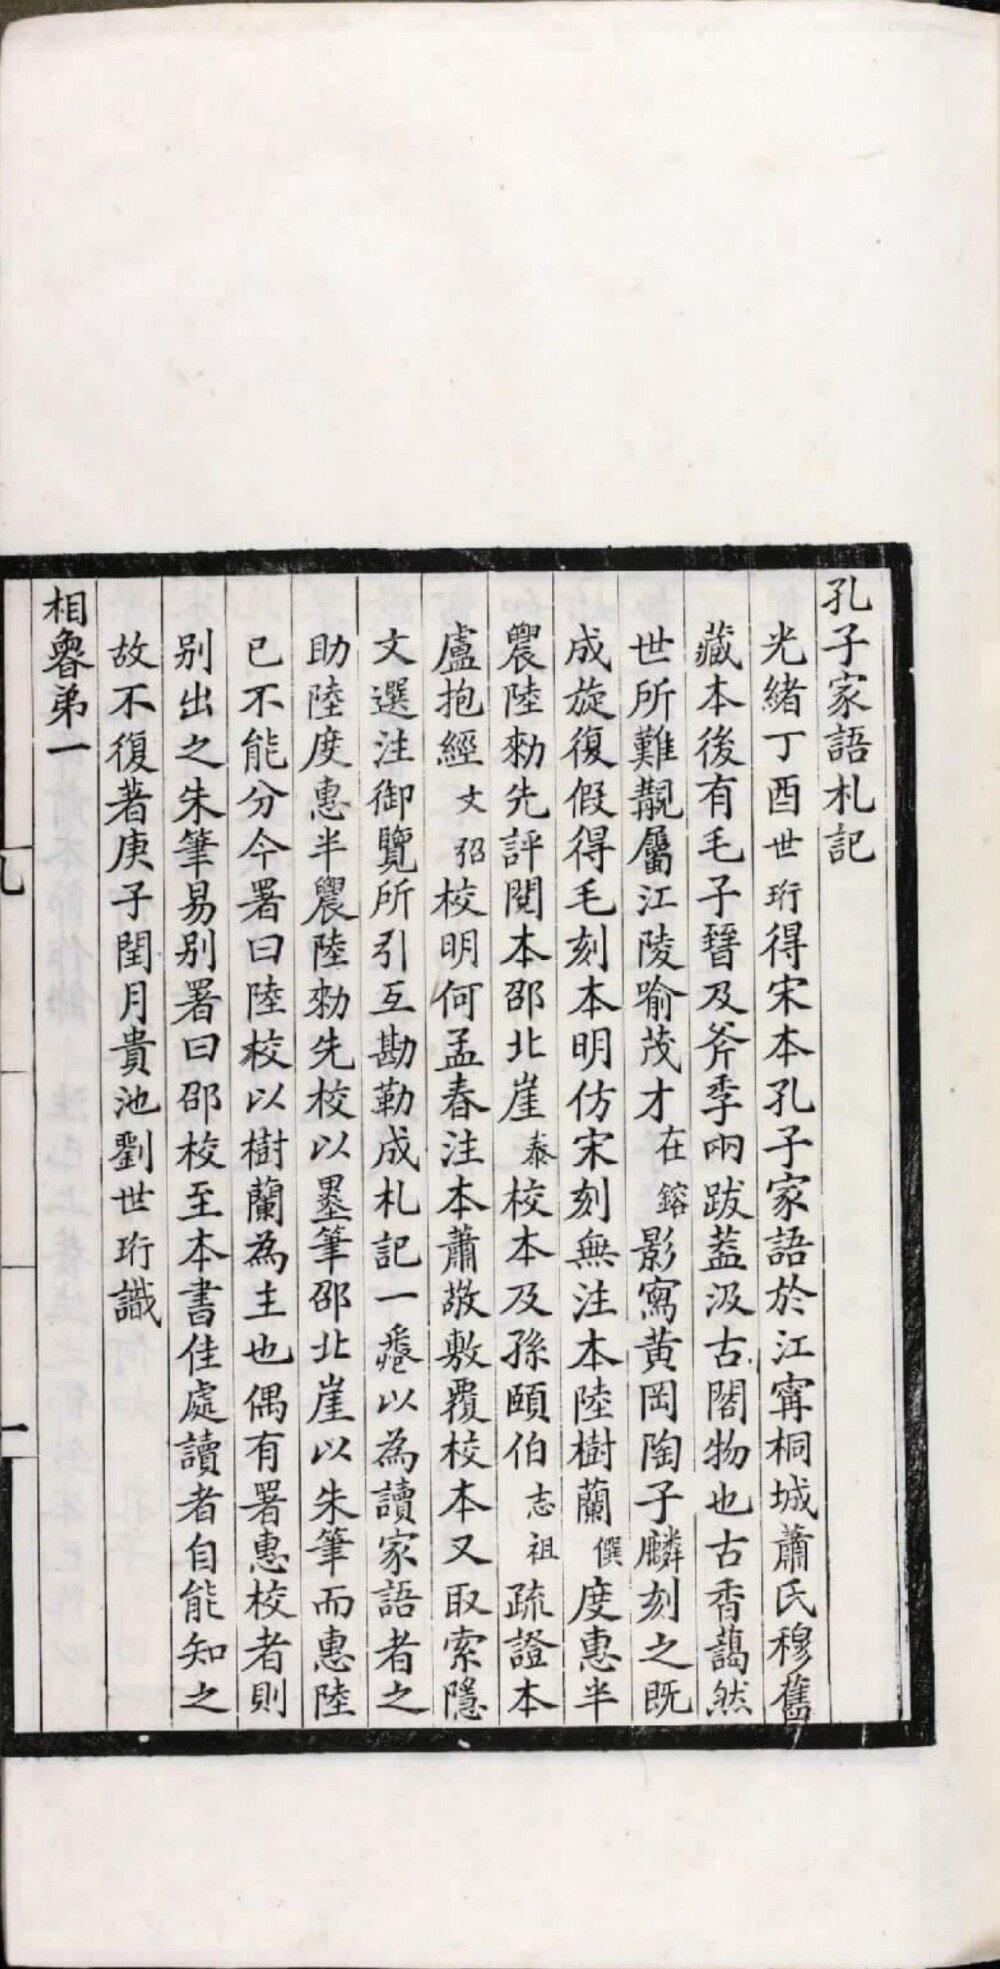 孔子家語札記
光緒丁酉世珩得宋本孔子家語於江寗桐城蕭氏穆舊
藏本後有毛子晉及斧季兩跋葢汲古閣物也古香藹然
世所難覯屬江陵喻茂才在鎔影寫黃岡陶子麟刻之既
成旋復假得毛刻本明仿宋刻無注本陸樹蘭僎度惠半
農陸勑先評閱本邵北崖泰校本及孫頤伯志祖疏證本
盧抱經文弨校明何孟春注本蕭敬敷覆校本又取索隱
文選注御覽所引互勘勒成札記一卷以為讀家語者之
助陸度惠半農陸勑先校以墨筆邵北崖以朱筆而惠陸
已不能分今署曰陸校以樹蘭為主也偶有署惠校者則
別出之朱筆易別署曰邵校至本書佳處讀者自能知之
故不復著庚子閏月貴池劉世珩識
相魯弟一
九
一